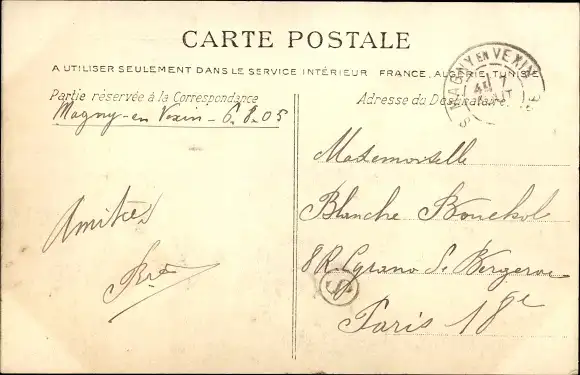 CARTE POSTALE
A UTILISER SEULEMENT DANS LE SERVICE INTÉRIEUR FRANCE, ALGÉRIE, TUNISIE
Partie réservée à la Correspondance
Magny-en Vexin - 6.8.05
Amitiés
Adresse du Destinataire
MAGNY EN VEXIN
Mademoiselle
Blanche Bouchol
8 R. Cyrano de Bergerac
Paris 18e